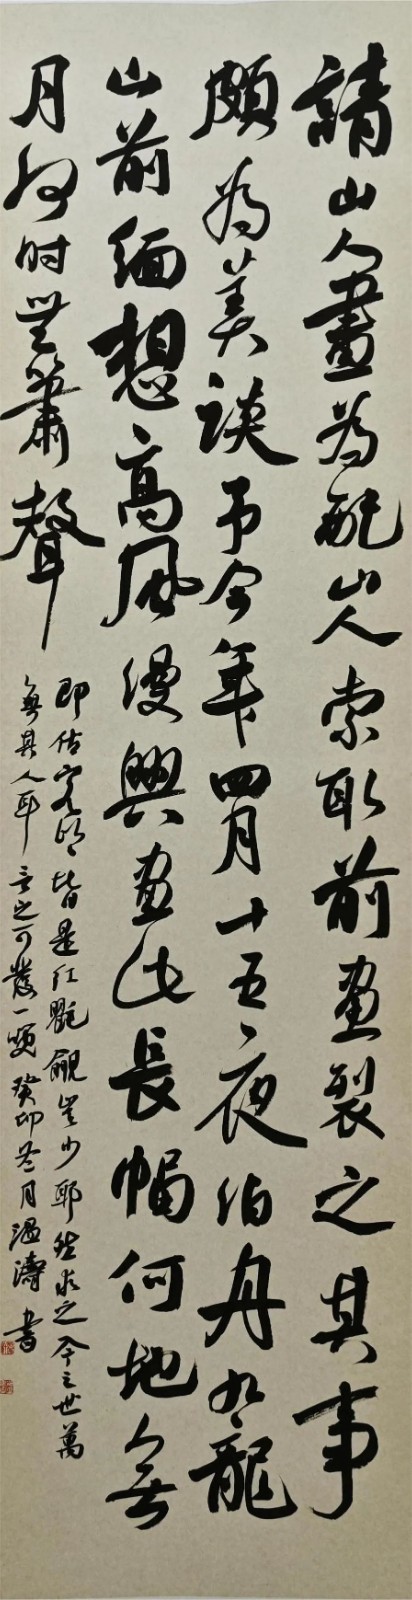 請山人畫為配山人索取前畫裂之其事
頗為美談予今年四月十五夜泊舟九龍
山前緬想高風漫興畫此長幅何地無
月何时無簫聲
即估客滿皆是红氍毹豈少耶然求之今之世萬
無其人耳言之可發一笑 癸卯冬月温濤書